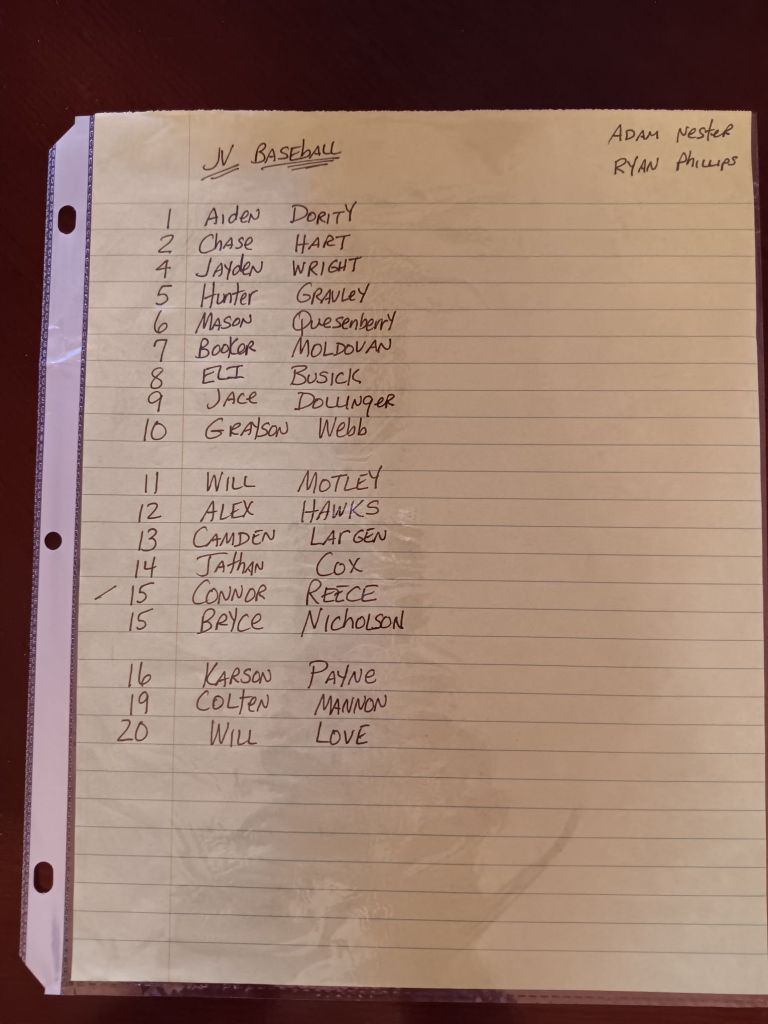 JV BASEBALL
ADAM Nester
RYAN Phillips
1 Aiden DORITY
2 CHASE HART
4 JAYdeN WRIGHT
5 Hunter GRAVLEY
6 MASON Quesenberry
7 BOOKER MOLDOVAN
8 ELI BUSICK
9 JACE DOLLINGER
10 GRAYSON Webb
11 WILL MOTLEY
12 ALEX HAWKS
13 CAMDEN LARGEN
14 JATHAN COX
15 CONNOR REECE
15 BRYCE NICHOLSON
16 KARSON PAYNE
19 COLTEN MANNON
20 WILL LOVE